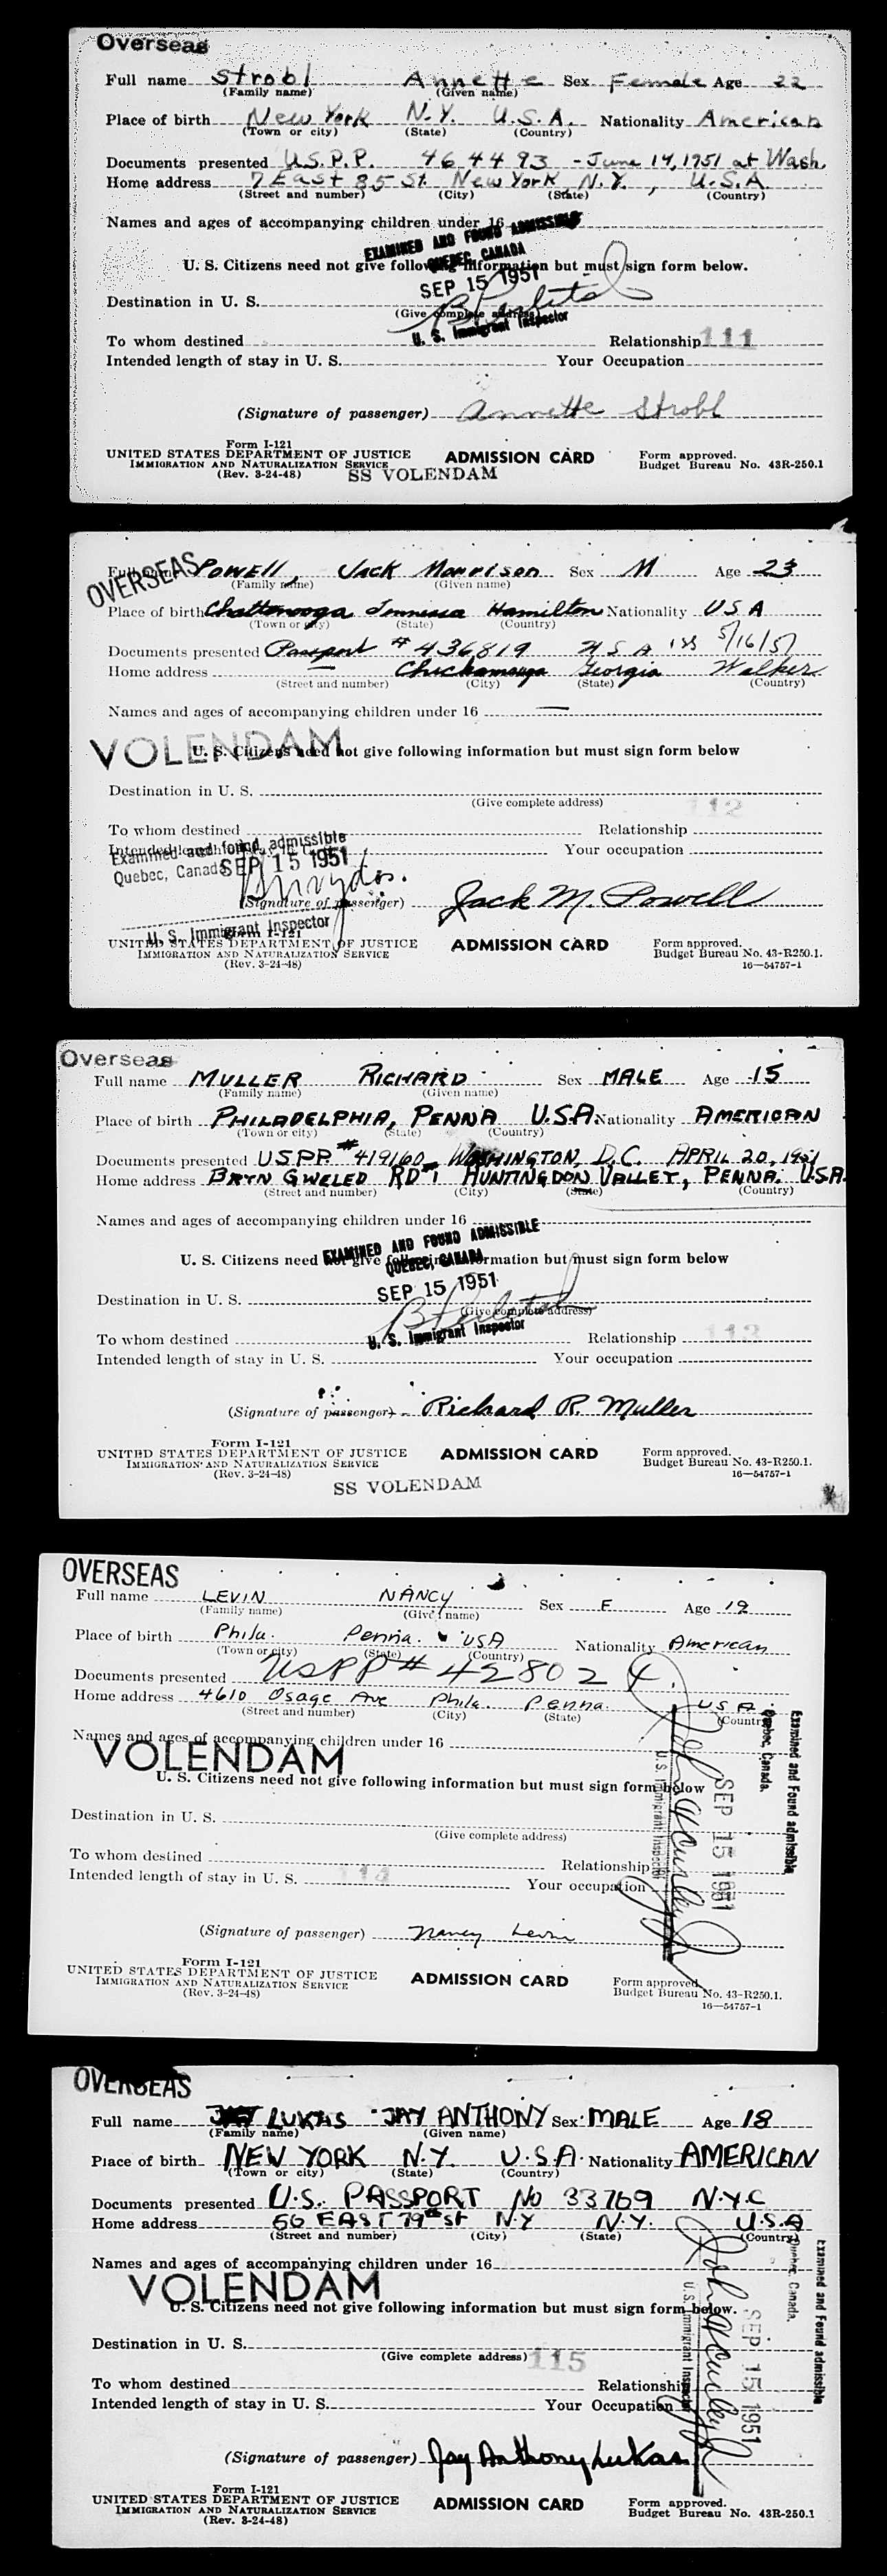 Overseas
Full name Strobl Annette Sex Female Age 22
(Family name) (Given name)
Place of birth New York N.Y. U.S.A. Nationality American
(Town or city) (State) (Country)
Documents presented U.S.P.P. 464493 - June 14, 1951 at Wash.
Home address 7 East 85 St. New York N.Y., U.S.A.
(Street and number) (City) (State) (Country)
Names and ages of accompanying children under 16
EXAMINED AND FOUND ADMISSIBLE
QUEBEC, CANADA
U. S. Citizens need not give following information but must sign form below.
SEP 15 1951
Destination in U. S.
(Give complete address)
U. S. Immigrant Inspector
To whom destined Relationship 111
Intended length of stay in U. S. Your Occupation
(Signature of passenger) Annette Strobl
Form I-121
UNITED STATES DEPARTMENT OF JUSTICE ADMISSION CARD Form approved.
IMMIGRATION AND NATURALIZATION SERVICE Budget Bureau No. 43R-250.1
(Rev. 3-24-48) SS VOLENDAM
OVERSEAS
Full name POWELL, JACK Morrison Sex M Age 23
(Family name) (Given name)
Place of birth Chattanooga Tennessee Hamilton Nationality USA
(Town or city) (State) (Country)
Documents presented Passport # 436819 USA iss 5/16/51
Home address Chickamauga Georgia Walker
(Street and number) (City) (State) (Country)
Names and ages of accompanying children under 16 —
VOLENDAM
U. S. Citizens need not give following information but must sign form below
Destination in U. S.
(Give complete address) 112
To whom destined Relationship
Intended length of stay in U. S. Your occupation
Examined and found admissible
Quebec, Canada SEP 15 1951
(Signature of passenger) Jack M. Powell
U. S. Immigrant Inspector
Form I-121
UNITED STATES DEPARTMENT OF JUSTICE ADMISSION CARD Form approved.
IMMIGRATION AND NATURALIZATION SERVICE Budget Bureau No. 43-R250.1.
(Rev. 3-24-48) 16—54757-1
Overseas
Full name MULLER RICHARD Sex MALE Age 15
(Family name) (Given name)
Place of birth PHILADELPHIA, PENNA U.S.A. Nationality AMERICAN
(Town or city) (State) (Country)
Documents presented USPP. # 419160 WASHINGTON, D.C. APRIL 20, 1951
Home address BRYN GWELED RD 1 HUNTINGDON VALLEY, PENNA. U.S.A.
(Street and number) (City) (State) (Country)
Names and ages of accompanying children under 16
EXAMINED AND FOUND ADMISSIBLE
QUEBEC, CANADA
U. S. Citizens need not give following information but must sign form below
SEP 15 1951
Destination in U. S.
(Give complete address)
U. S. Immigrant Inspector
To whom destined Relationship 113
Intended length of stay in U. S. Your occupation
(Signature of passenger) Richard R. Muller
Form I-121
UNITED STATES DEPARTMENT OF JUSTICE ADMISSION CARD Form approved.
IMMIGRATION AND NATURALIZATION SERVICE Budget Bureau No. 43-R250.1.
(Rev. 3-24-48) 16—54757-1
SS VOLENDAM
OVERSEAS
Full name LEVIN NANCY Sex F Age 19
(Family name) (Given name)
Place of birth Phila. Penna. USA Nationality American
(Town or city) (State) (Country)
Documents presented USPP # 428024
Home address 4610 Osage Ave Phila. Penna. USA
(Street and number) (City) (State) (Country)
Names and ages of accompanying children under 16
VOLENDAM
U. S. Citizens need not give following information but must sign form below
Examined and Found admissible
Quebec, Canada.
SEP 15 1951
U.S. Immigrant Inspector
Destination in U. S.
(Give complete address)
To whom destined Relationship
Intended length of stay in U. S. 114 Your occupation
(Signature of passenger) Nancy Levin
Form I-121
UNITED STATES DEPARTMENT OF JUSTICE ADMISSION CARD Form approved.
IMMIGRATION AND NATURALIZATION SERVICE Budget Bureau No. 43-R250.1.
(Rev. 3-24-48) 16—54757-1
OVERSEAS
Full name LUKAS JAY ANTHONY Sex MALE Age 18
(Family name) (Given name)
Place of birth NEW YORK N.Y. U.S.A. Nationality AMERICAN
(Town or city) (State) (Country)
Documents presented U.S. PASSPORT No 33769 N.Y.C
Home address 50 EAST 79th St N.Y N.Y. U.S.A
(Street and number) (City) (State) (Country)
Names and ages of accompanying children under 16
VOLENDAM
U. S. Citizens need not give following information but must sign form below.
Examined and Found admissible
Quebec, Canada.
SEP 15 1951
U.S. Immigrant Inspector
Destination in U. S.
(Give complete address) 115
To whom destined Relationship
Intended length of stay in U. S. Your Occupation
(Signature of passenger) Jay Anthony Lukas
Form I-121
UNITED STATES DEPARTMENT OF JUSTICE ADMISSION CARD Form approved.
IMMIGRATION AND NATURALIZATION SERVICE Budget Bureau No. 43R-250.1
(Rev. 3-24-48)